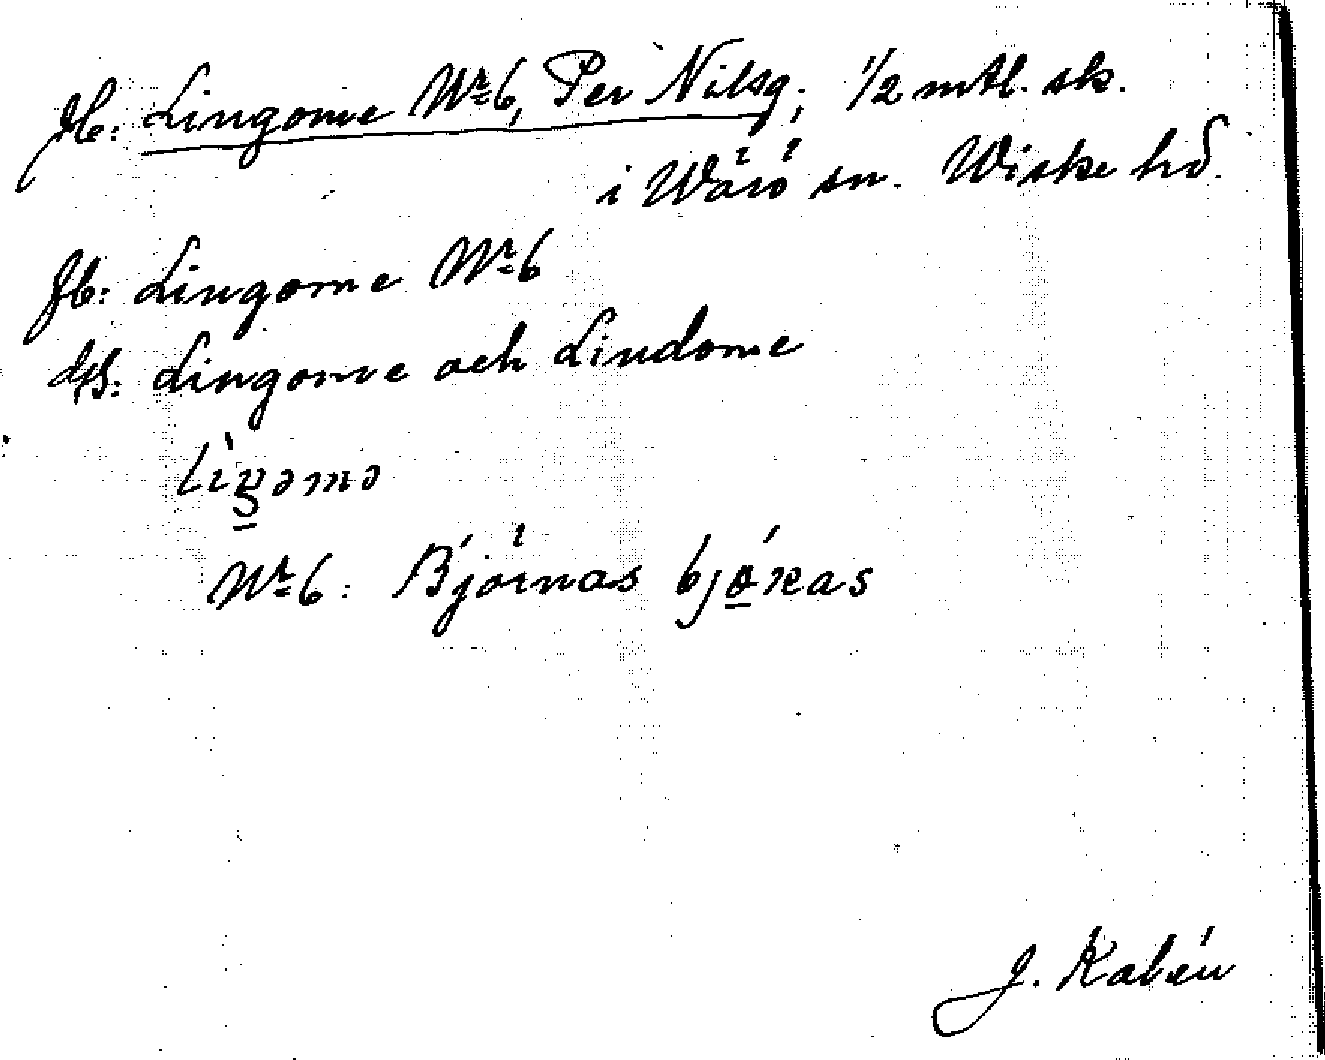 Jb: Lingome Nr 6, Per Nilsg; 1/2 mtl. sk.
i Wärö sn. Wiske hd.
Jb: Lingome Nr 6
Lingome och Lindome
Nr 6: Björnas
J. Kalén